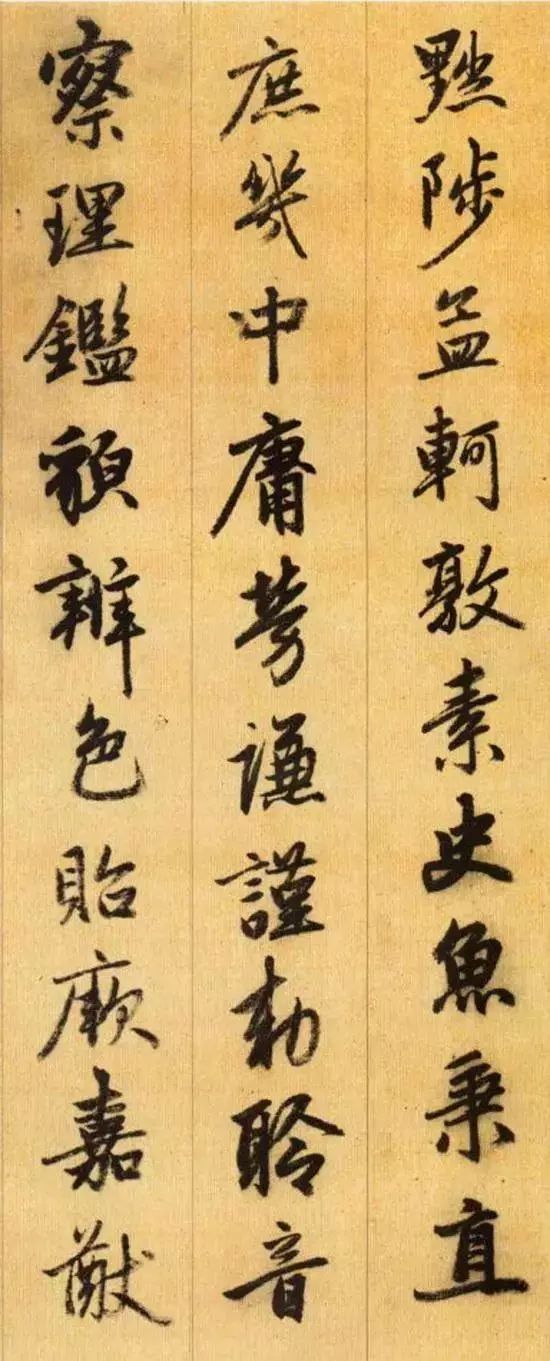 黜陟孟軻敦素史魚秉直
庶幾中庸勞謙謹勅聆音
察理鑑貌辨色貽厥嘉猷